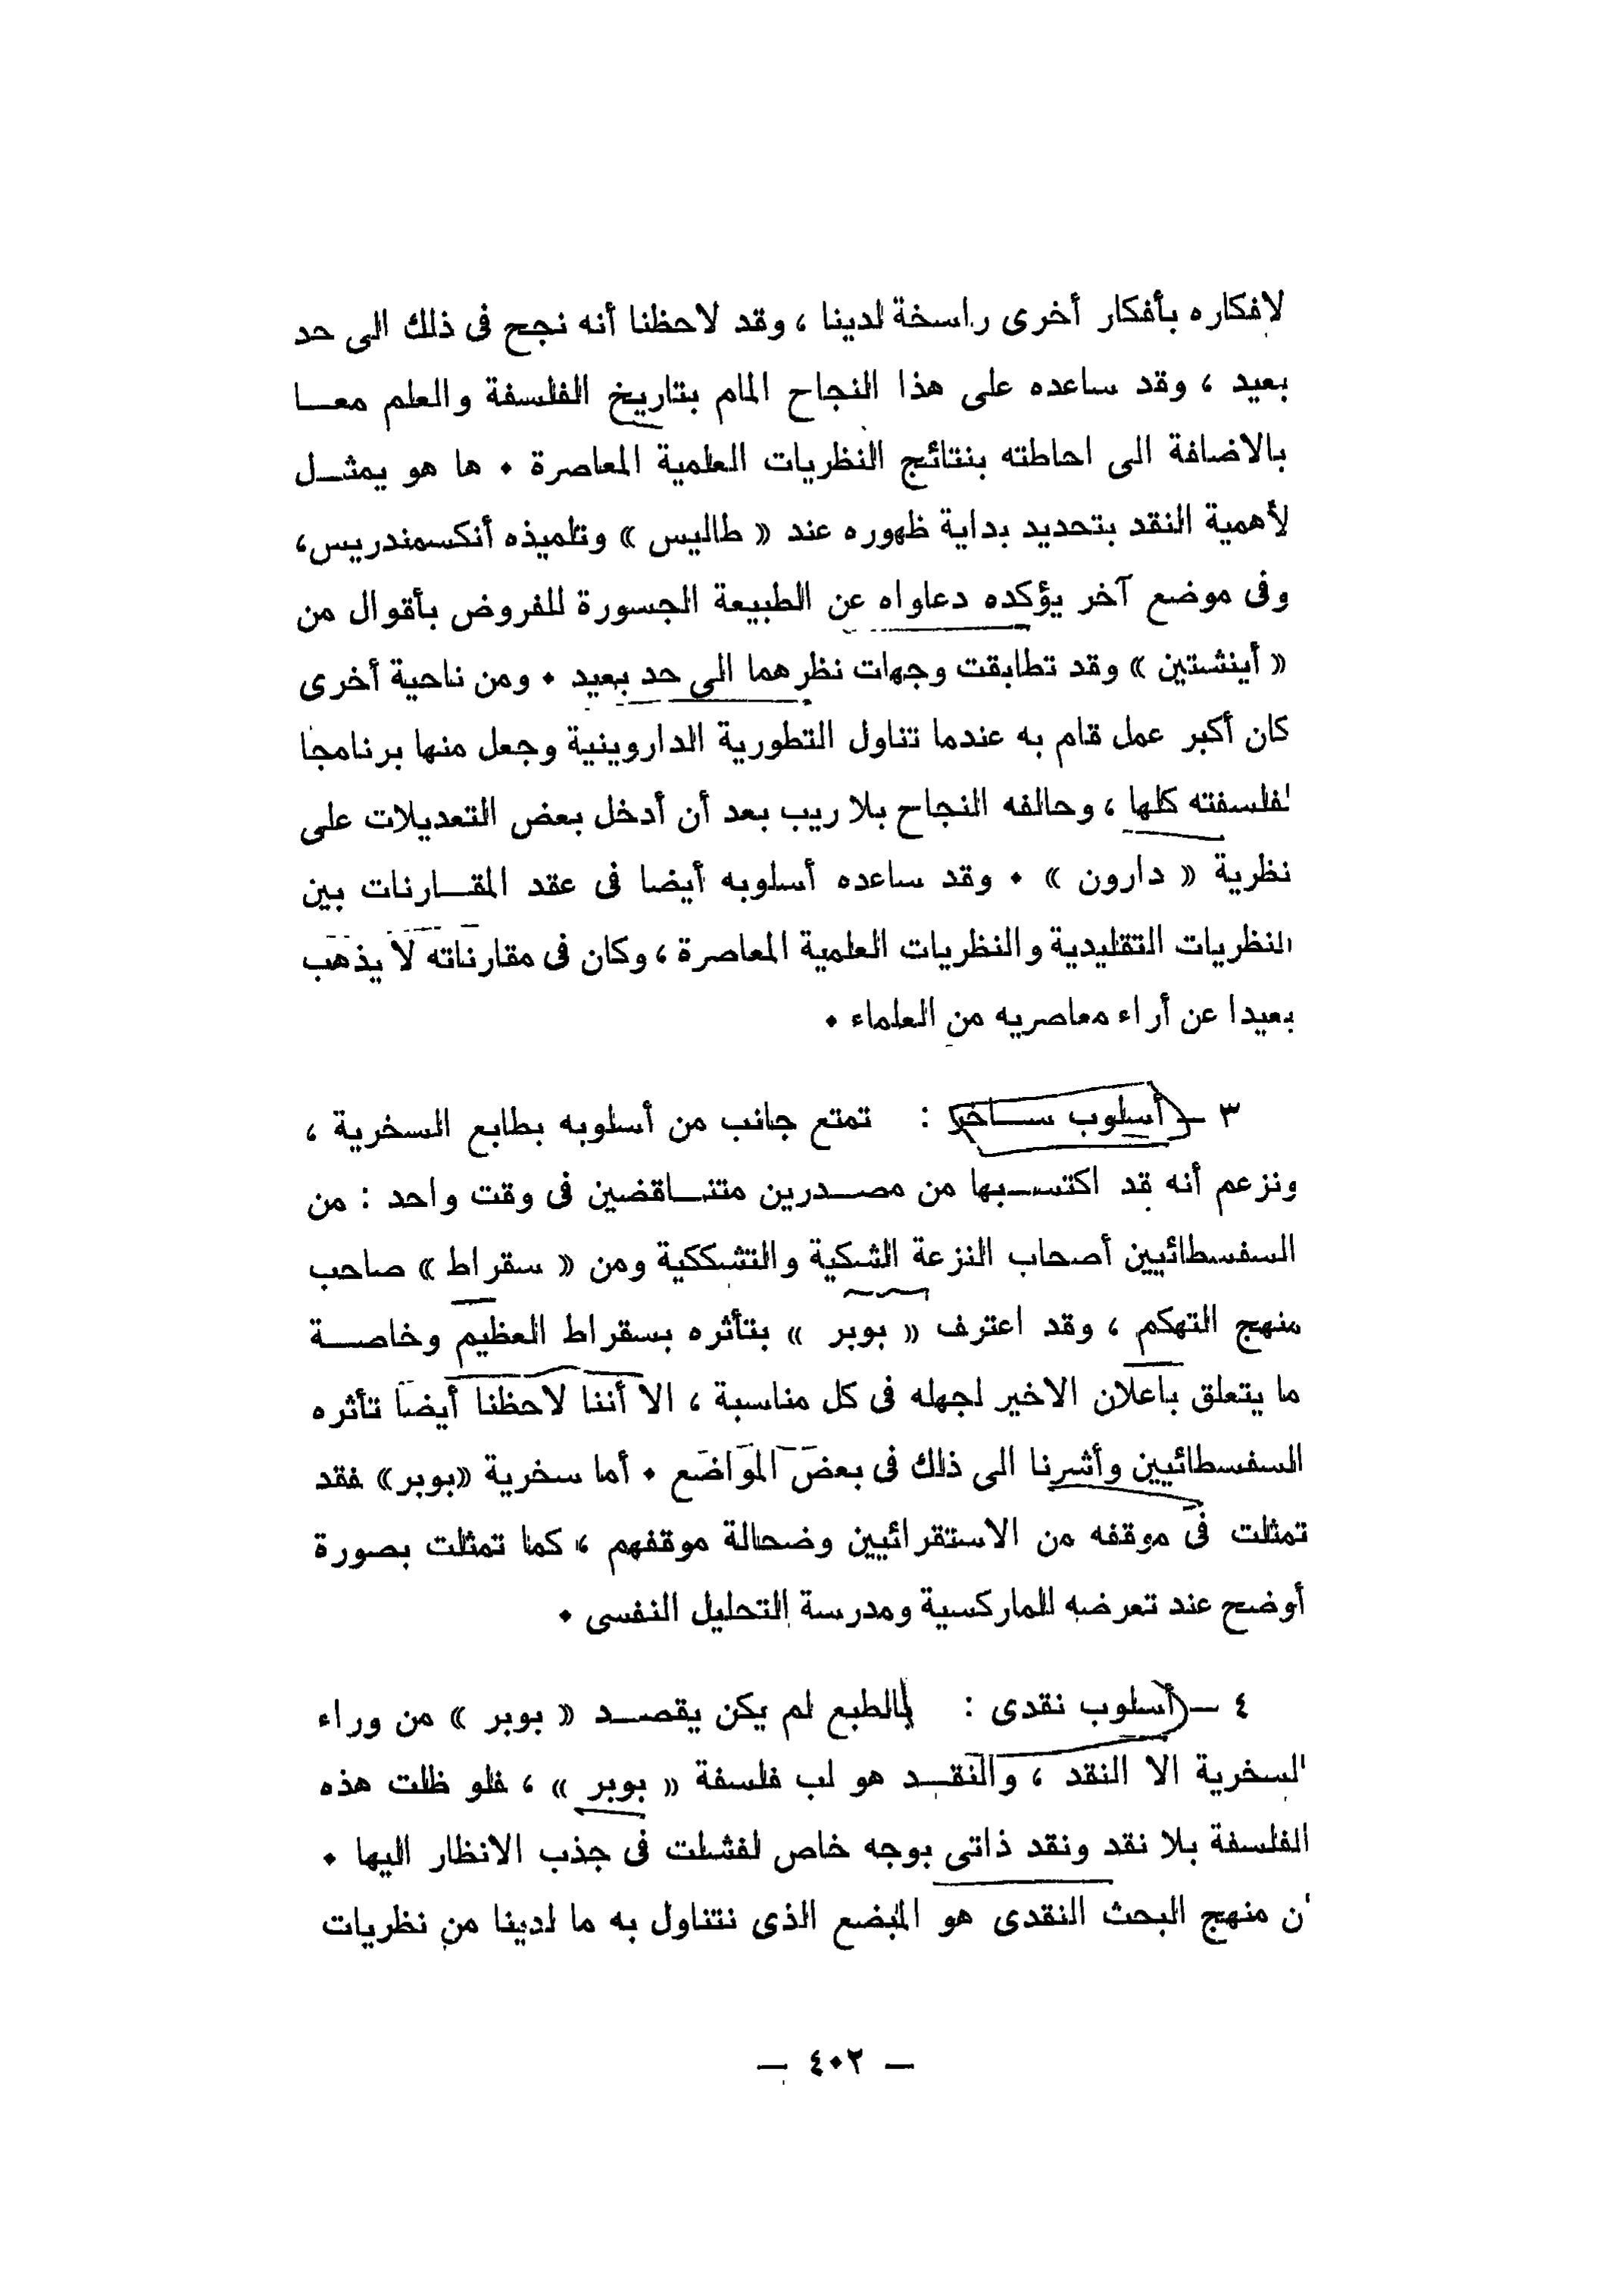 لافكاره بأفكار أخرى راسخة لدينا ، وقد لاحظنا أنه نجح فى ذلك الى حد
بعيد ، وقد ساعده على هذا النجاح المام بتاريخ الفلسفة والعلم معا
بالاضافة الى احاطته بنتائج النظريات العلمية المعاصرة ٠ ها هو يمثل
لأهمية النقد بتحديد بداية ظهوره عند « طاليس » وتلميذه أنكسمندريس،
وفى موضع آخر يؤكده دعاواه عن الطبيعة الجسورة للفروض بأقوال من
« أينشتين » وقد تطابقت وجهات نظرهما الى حد بعيد ٠ ومن ناحية أخرى
كان أكبر عمل قام به عندما تناول التطورية الداروينية وجعل منها برنامجا
لفلسفته كلها ، وحالفه النجاح بلا ريب بعد أن أدخل بعض التعديلات على
نظرية « دارون » ٠ وقد ساعده أسلوبه أيضا فى عقد المقارنات بين
النظريات التقليدية والنظريات العلمية المعاصرة ، وكان فى مقارناته لا يذهب
بعيدا عن أراء معاصريه من العلماء ٠
٣ – أسلوب ساخر : تمتع جانب من أسلوبه بطابع السخرية ،
ونزعم أنه قد اكتسبها من مصدرين متناقضين فى وقت واحد : من
السفسطائيين أصحاب النزعة الشكية والتشككية ومن « سقراط » صاحب
منهج التهكم ، وقد اعترف « بوبر » بتأثره بسقراط العظيم وخاصة
ما يتعلق باعلان الاخير لجهله فى كل مناسبة ، الا أننا لاحظنا أيضا تأثره
السفسطائيين وأشرنا الى ذلك فى بعض المواضع ٠ أما سخرية «بوبر» فقد
تمثلت فى موقفه من الاستقرائيين وضحالة موقفهم ، كما تمثلت بصورة
أوضح عند تعرضه للماركسية ومدرسة التحليل النفسى ٠
٤ – أسلوب نقدى : بالطبع لم يكن يقصد « بوبر » من وراء
السخرية الا النقد ، والنقد هو لب فلسفة « بوبر » ، فلو ظلت هذه
الفلسفة بلا نقد ونقد ذاتى بوجه خاص لفشلت فى جذب الانظار اليها ٠
ان منهج البحث النقدى هو المبضع الذى نتناول به ما لدينا من نظريات
– ٤٠٢ –